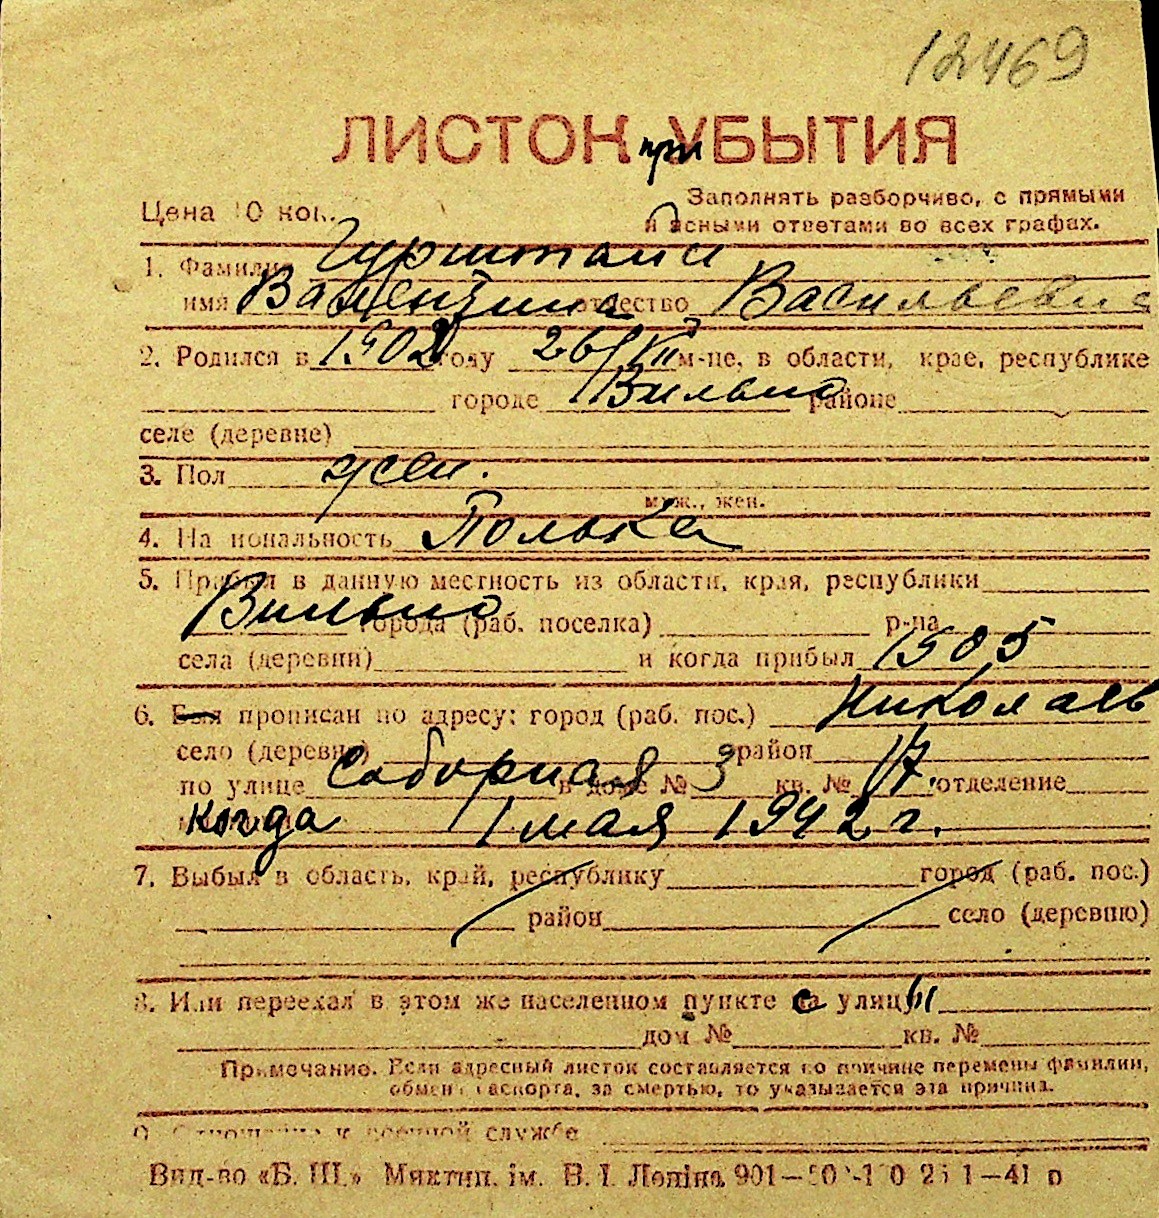 12469
ЛИСТОК при УБЫТИЯ
Цена 10 коп. Заполнять разборчиво, с прямыми
и ясными ответами во всех графах.
1. Фамилия Гурштайн
имя Валентина отчество Васильевна
2. Родился в 1902 году 26/VII м-це, в области, крае, республике
городе Вильно районе
селе (деревне)
3. Пол жен.
муж., жен.
4. Национальность Полька
5. Прибыл в данную местность из области, края, республики
Вильно города (раб. поселка) р-на
села (деревни) и когда прибыл 1905
6. Был прописан по адресу: город (раб. пос.) Николаев
село (деревне) район
по улице Соборная в доме № 3 кв. № 17, отделение
когда 1 мая 1942 г.
7. Выбыл в область, край, республику город (раб. пос.)
район село (деревню)
8. Или переехал в этом же населенном пункте с улицы
дом № кв. №
Примечание. Если адресный листок составляется по причине перемены фамилии,
обмена паспорта, за смертью, то указывается эта причина.
9. Отношение к военной службе
Вид-во «Б. Ш.» Миктип. ім. В. І. Леніна 901